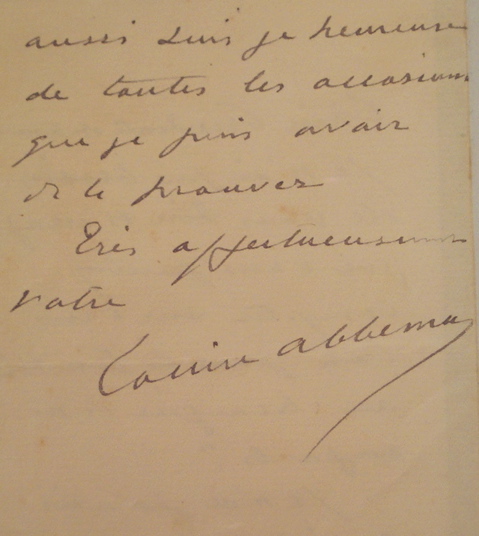 aussi suis je heureuse
de toutes les occasions
que je puis avoir
de le prouver
Très affectueusement
votre
Louise Abbema